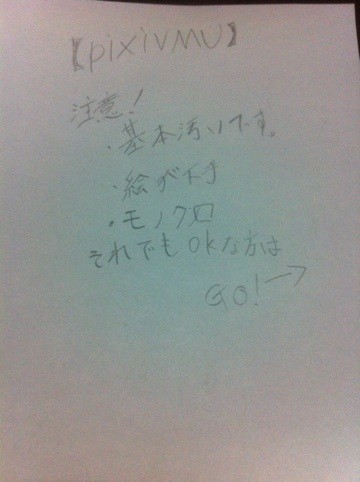 【pixivMU】
注意!
・基本汚いです。
・絵が下手
・モノクロ
それでもokな方は
GO!→